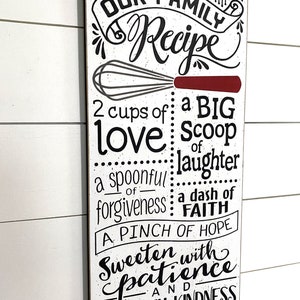 OUR FAMILY
Recipe
2 cups of
love
a BIG
Scoop
of
laughter
a spoonful
OF
forgiveness
a dash of
FAITH
A PINCH OF HOPE
Sweeten with
patience
AND